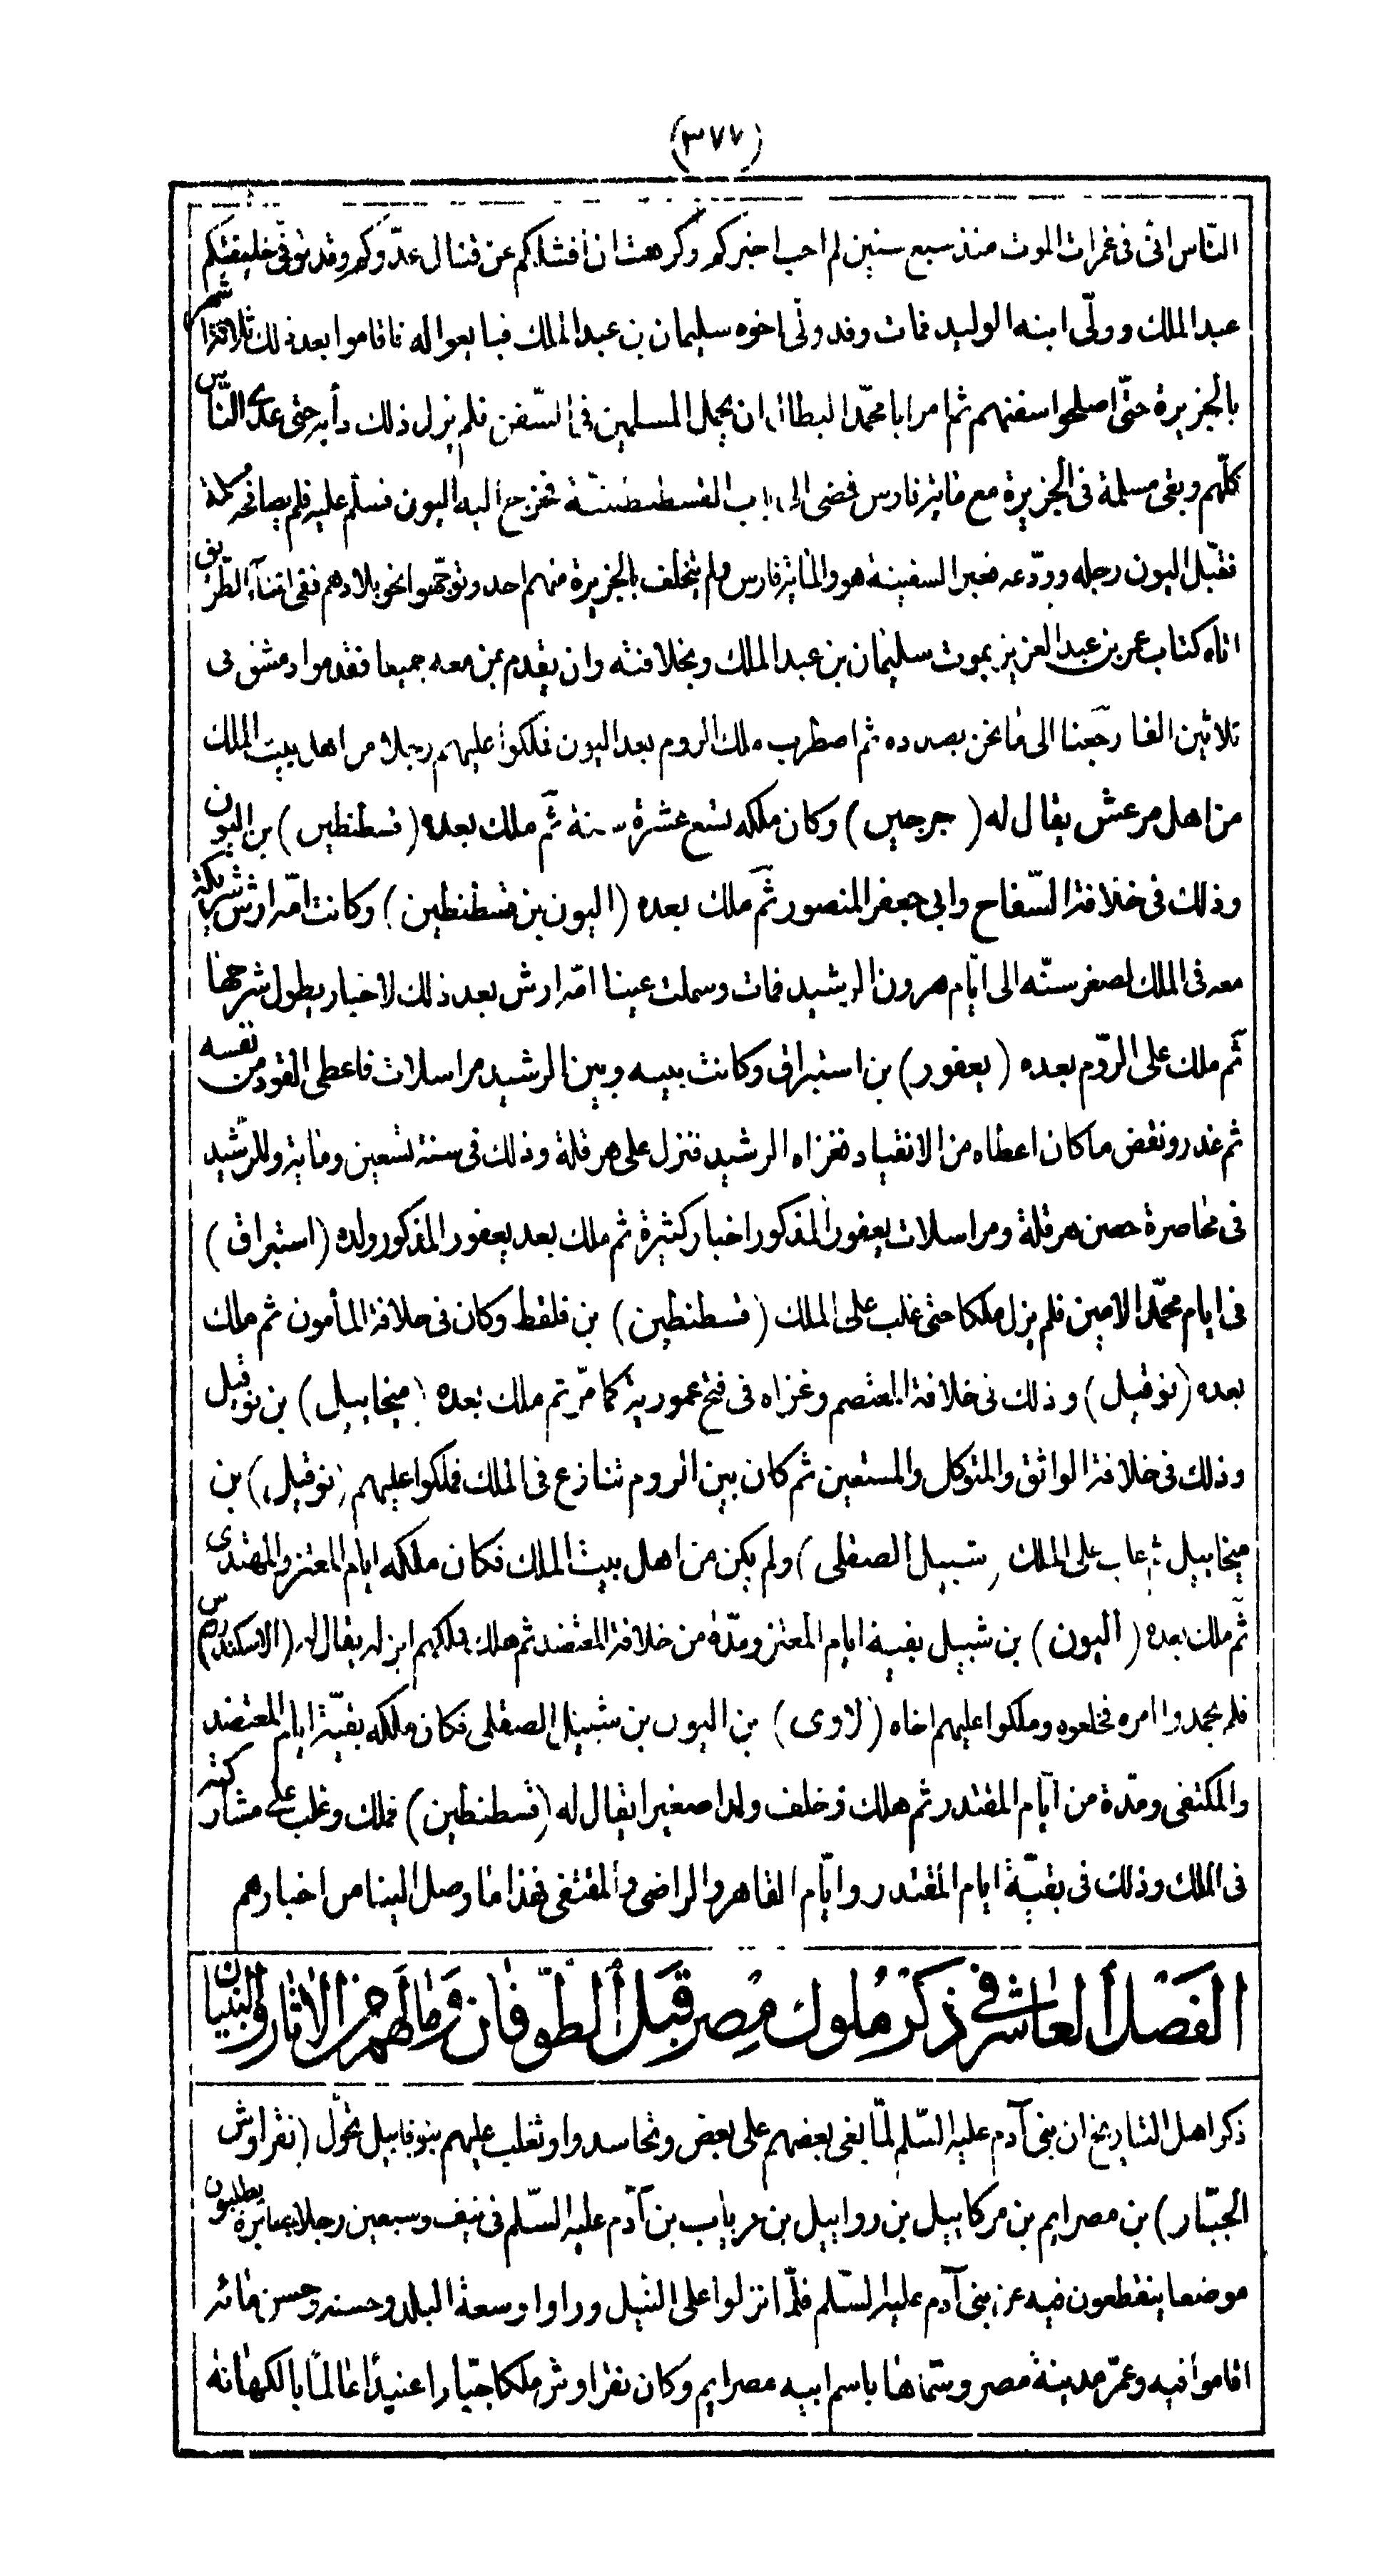 (٣٧٧)
النّاس انى فى غمرات الموت منذ سبع سنين لم احب اخبركم وكرهت ان افشلكم عن قتال عدّوكم وقد توفى خليفتكم
عبد الملك وولّى ابنه الوليد فمات وقد ولّى اخوه سليمان بن عبد الملك فبايعوا له فاقاموا بعد ذلك ثلاثة اشهر
بالجزيرة حتّى اصلحوا سفنهم ثم امر ابا محمّد البطال ان يحمل المسلمين فى السّفن فلم يزل ذلك دأبه حتى عدى النّاس
كلّهم وبقى مسلمة فى الجزيرة مع مائة فارس فمضى الى باب القسطنطينيّة فخرج اليه اليون فسلّم عليه فلم يصافحه مسلمة
فقبّل اليون رجله وودّعه فعبر السفينة هو والمائة فارس ولم يتخلف بالجزيرة منهم احد وتوجّهوا نحو بلادهم ففى اثنآء الطّريق
اتاه كتاب عمر بن عبد العزيز بموت سليمان بن عبد الملك وبخلافته وان يقدم بمن معه جميعا فقدموا دمشق فى
ثلاثين الفا رجعنا الى ما نحن بصدده ثم اضطرب ملك الروم بعد اليون فملكوا عليهم رجلا من اهل بيت الملك
من اهل مرعش يقال له (جرجيس) وكان ملكه تسع عشرة سنة ثم ملك بعده (قسطنطين) بن اليون
وذلك فى خلافة السّفاح وابى جعفر المنصور ثم ملك بعده (اليون بن قسطنطين) وكانت امّه ارش شريكة
معه فى الملك لصغر سنّه الى ايّام هرون الرشيد فمات وسملت عينا امّه ارش بعد ذلك لاخبار يطول شرحها
ثم ملك على الرّوم بعده (يعفور) بن استبراق وكانت بينه وبين الرشيد مراسلات فاعطى القود من نفسه
ثم غدر ونقض ما كان اعطاه من الانقياد فغزاه الرشيد فنزل على هرقلة وذلك فى سنة تسعين ومائة وللرّشيد
فى محاصرة حصن هرقلة ومراسلات يعفور المذكور اخبار كثيرة ثم ملك بعد يعفور المذكور ولده (استبراق)
فى ايام محمّد الامين فلم يزل ملكا حتى غلب على الملك (قسطنطين) بن فلقط وكان فى خلافة المأمون ثم ملك
بعده (نوفيل) وذلك فى خلافة المعتصم وغزاه فى فتح عمورية كما مرّ ثم ملك بعده (ميخاييل) بن نوفيل
وذلك فى خلافة الواثق والمتوكل والمستعين ثم كان بين الروم تنازع فى الملك فملكوا عليهم (نوفيل) بن
ميخاييل ثم غاب على الملك (شبيل الصقلى) ولم يكن من اهل بيت الملك فكان ملكه ايام المعتز والمهتدى
ثم ملك بعده (اليون) بن شبيل بقية ايام المعتز ومدّة من خلافة المعتضد ثم هلك فملكهم ابن له يقال له (الاسكندروس)
فلم يحمدوا امره فخلعوه وملكوا عليهم اخاه (لاوى) بن اليون بن شبيل الصقلى فكان ملكه بقيّة ايام المعتضد
والمكتفى ومدّة من ايّام المقتدر ثم هلك وخلف ولدا صغيرا يقال له (قسطنطين) فملك وغلب على مشاركته
فى الملك وذلك فى بقيّة ايام المقتدر وايّام القاهر والراضى والمقتفى فهذا ما وصل الينا من اخبارهم
الفصل العاشر فى ذكر ملوك مصر قبل الطّوفان وما لهم من الاثار والبنيان
ذكر اهل التاريخ ان بنى آدم عليه السّلم لمّا بغى بعضهم على بعض وتحاسدوا وتغلب عليهم بنو قابيل تحوّل (نقراوش
الجبّار) بن مصرايم بن مركاييل بن رواييل بن عرياب بن آدم عليه السّلم فى نيف وسبعين رجلا جبابرة يطلبون
موضعا ينقطعون فيه عن بنى آدم عليه السّلم فلمّا نزلوا على النيل وراوا وسعة البلد وحسنه وحسن مائه
اقاموا فيه وعمّر مدينة مصر وسمّاها باسم ابيه مصرايم وكان نقراوش ملكا جبّارا عنيدا عالما بالكهانة